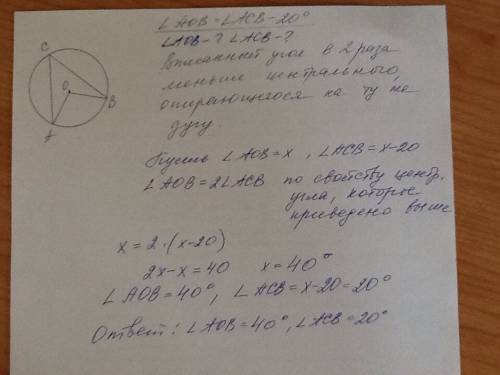 ∠AOB = ∠ACB - 20°
∠AOB - ? ∠ACB - ?
Вписанный угол в 2 раза
меньше центрального,
опирающегося на ту же
дугу.
C
O
B
A
Пусть ∠AOB = x, ∠ACB = x-20
∠AOB = 2∠ACB по свойству центр.
угла, которые
приведено выше
x = 2·(x-20)
2x-x = 40 x = 40°
∠AOB = 40°, ∠ACB = x-20 = 20°
Ответ: ∠AOB = 40°, ∠ACB = 20°